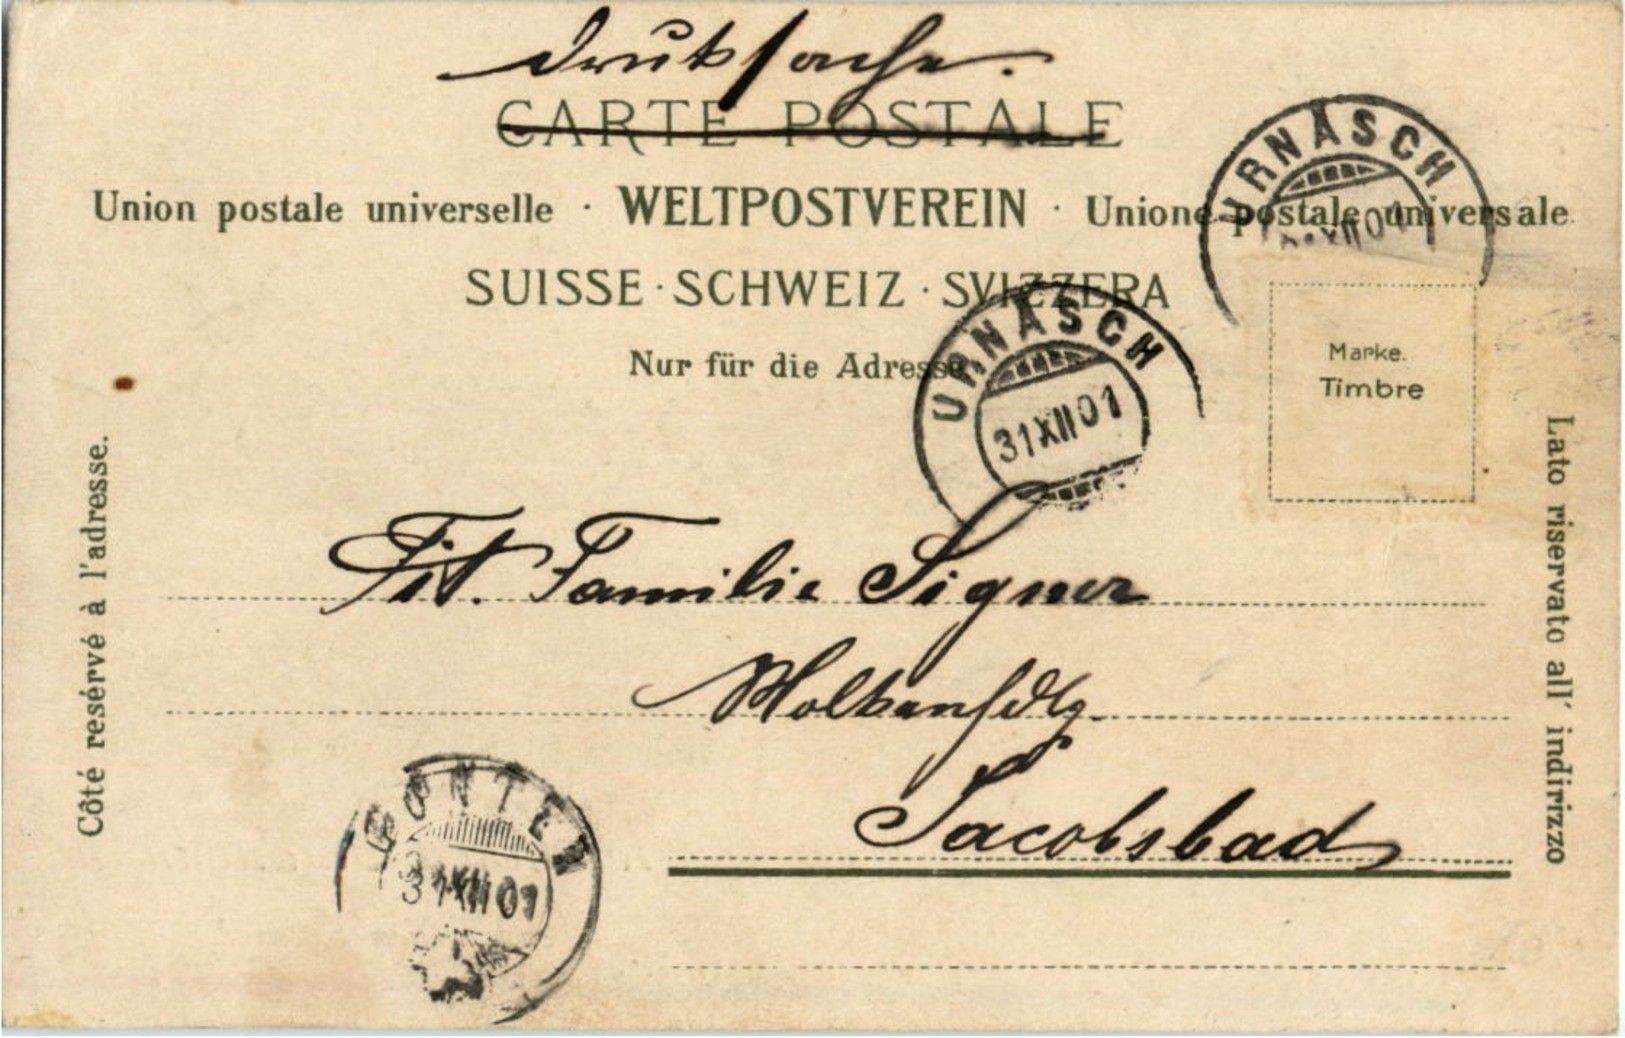 Druksache.
CARTE POSTALE
Union postale universelle · WELTPOSTVEREIN · Unione postale universale
SUISSE · SCHWEIZ · SVIZZERA
Nur für die Adresse
URNÄSCH
XII 01
URNÄSCH
31 XII 01
Marke.
Timbre
Côté resérvé à l'adresse.
Lato riservato all' indirizzo
Tit. Familie Signer
Molkenhdlg.
Jacobsbad
GONTEN
31 XII 01